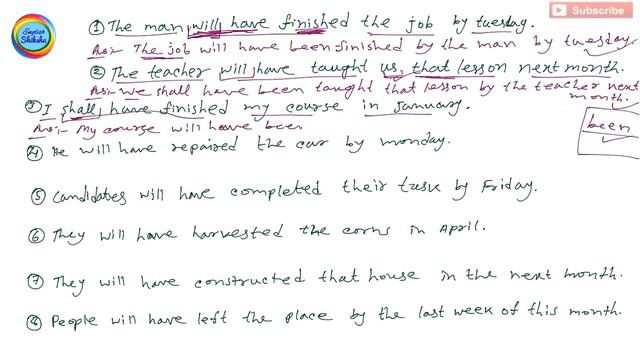 English Shiksha
Subscribe
① The man will have finished the job by tuesday.
Ans:- The job will have been finished by the man by tuesday.
② The teacher will have taught us, that lesson next month.
Ans:- We shall have been taught that lesson by the teacher next month.
③ I shall have finished my course in January.
been
Ans:- My course will have been
④ He will have repaired the car by monday.
⑤ Candidates will have completed their task by Friday.
⑥ They will have harvested the corns in April.
⑦ They will have constructed that house in the next month.
⑧ People will have left the place by the last week of this month.